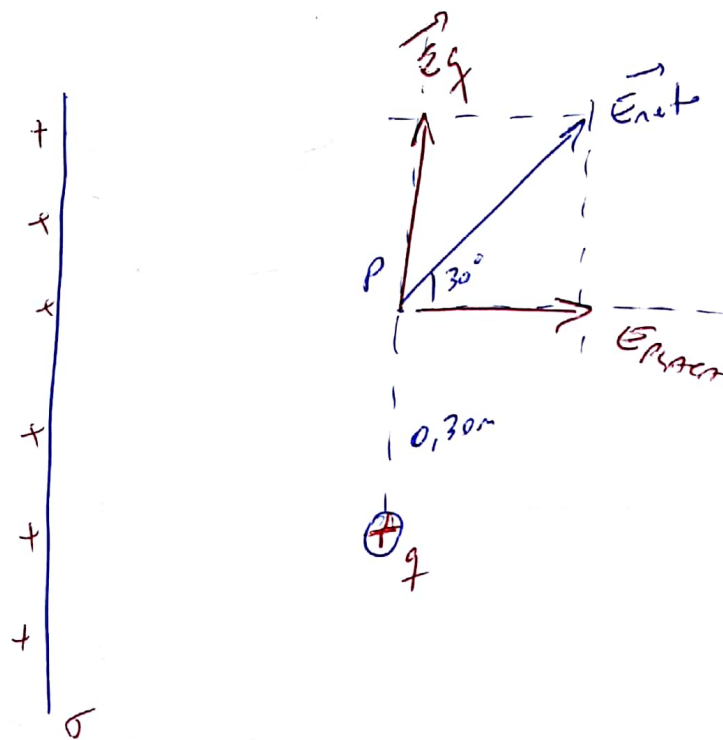 E⃗q
E⃗neto
+
+
+
P
30°
E PLACA
+
0,30m
+
+
q
+
σ